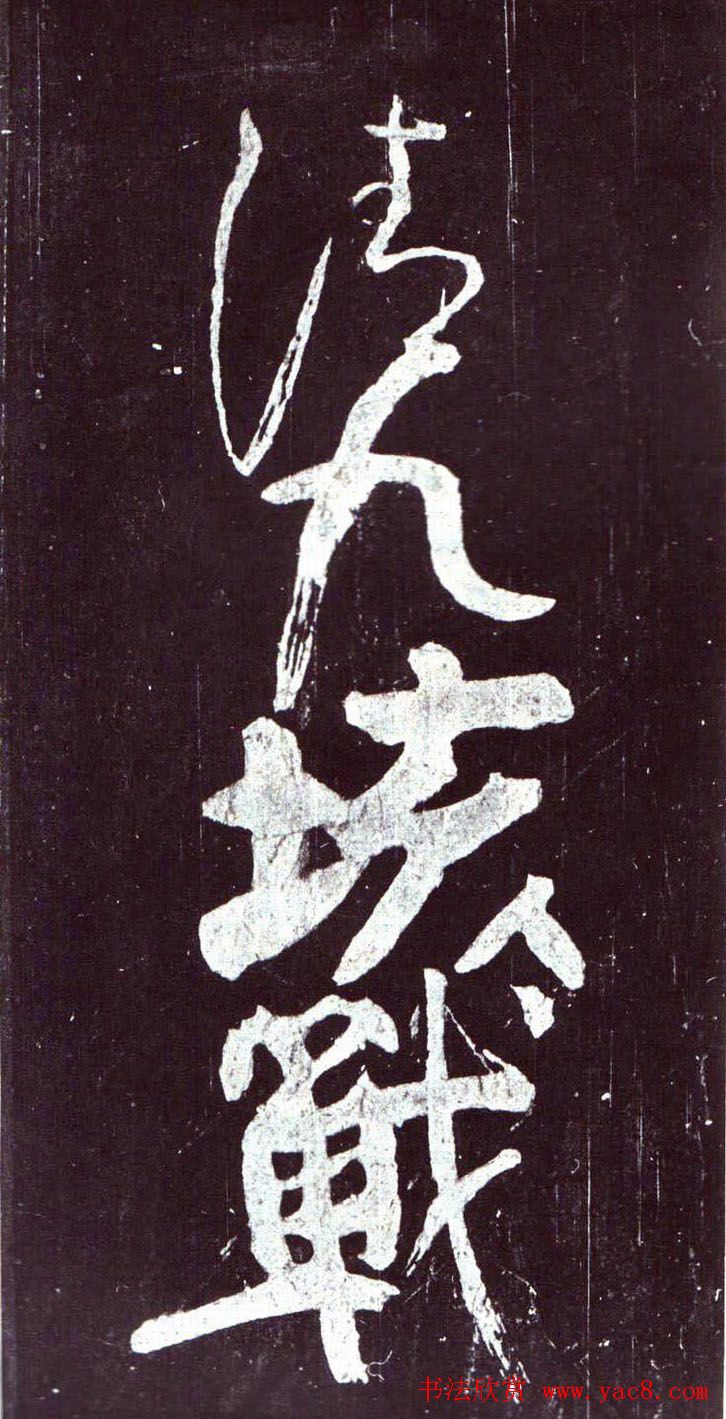 清九垓戰
书法欣赏 www.yac8.com